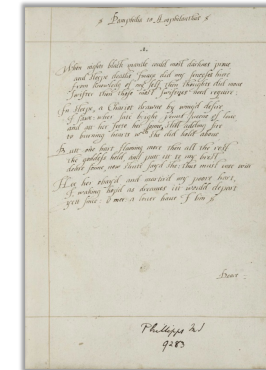 Pamphilia to Amphilanthus
1.
When nights black mantle could most darknes prove
and sleepe deaths Image did my senceses hiere
from knowledg of my self, then thoughts did move
swifter then those most swiftnes need require
In sleepe, a Chariot drawne by wing'd desire
I sawe: wher sate bright Venus Queene of love
and att her feete her sonne, still adding fire
to burning hearts wch she did hold above
Butt one hart flaming more then all the rest
the goddess held, and putt itt to my brest
deare sonne, now shutt sayd she: thus must wee win
Hee her obay'd, and martir'd my poore hart,
I, waking hop'd as dreames itt would depart
yett since: O mee: a lover have I bin
Phillipps MS
9283